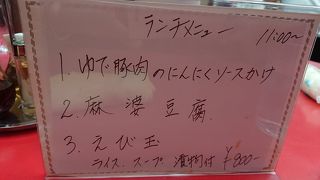 ランチメニュー
11:00〜
1. ゆで豚肉のにんにくソースかけ
2. 麻婆豆腐
3. えび玉
ライス、スープ、漬物付 ¥800-